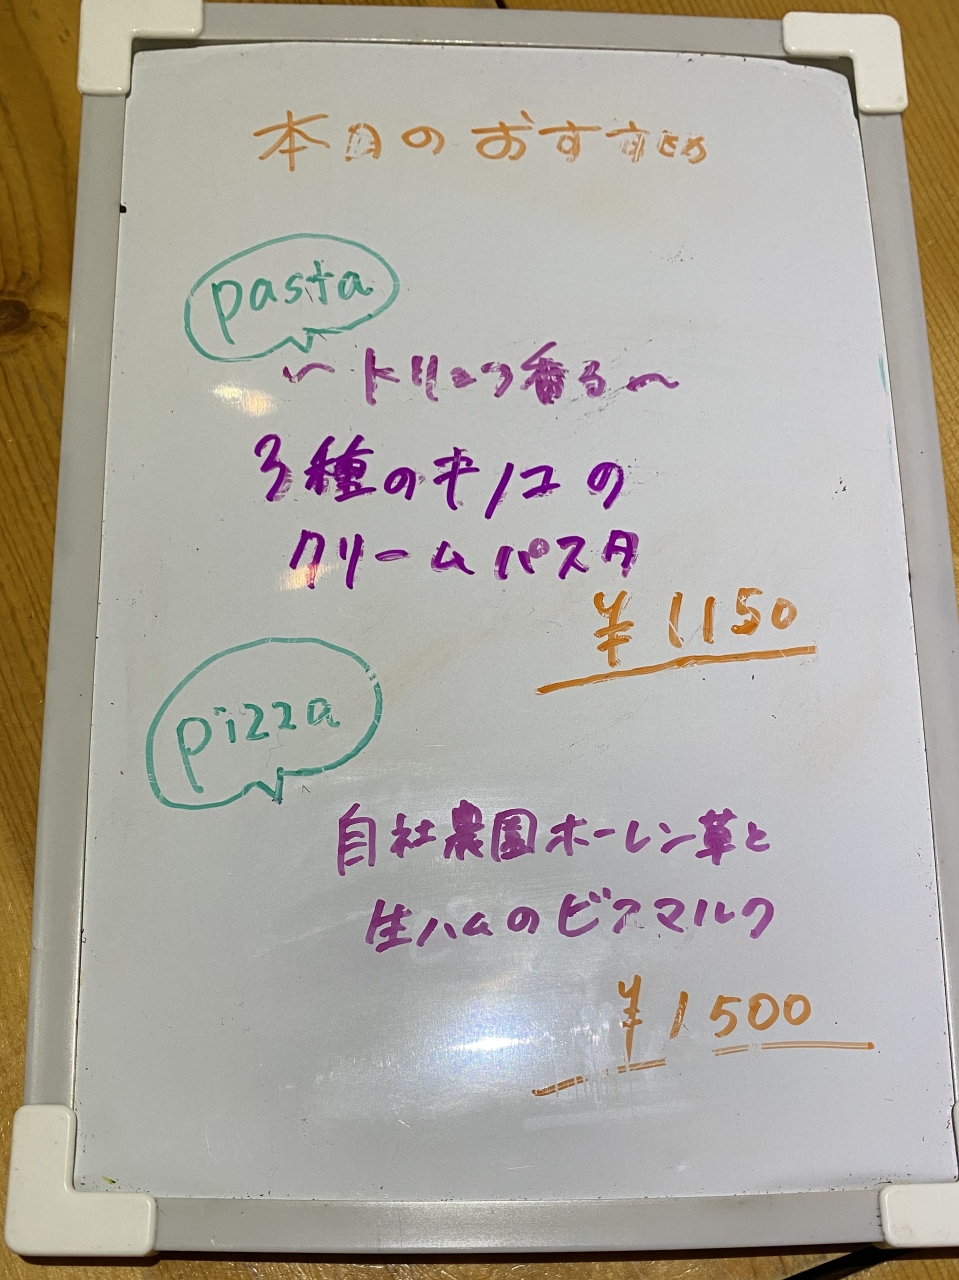 本日のおすすめ
pasta
〜トリュフ香る〜
3種のキノコの
クリームパスタ
¥1150
pizza
自社農園ホーレン草と
生ハムのビスマルク
¥1500